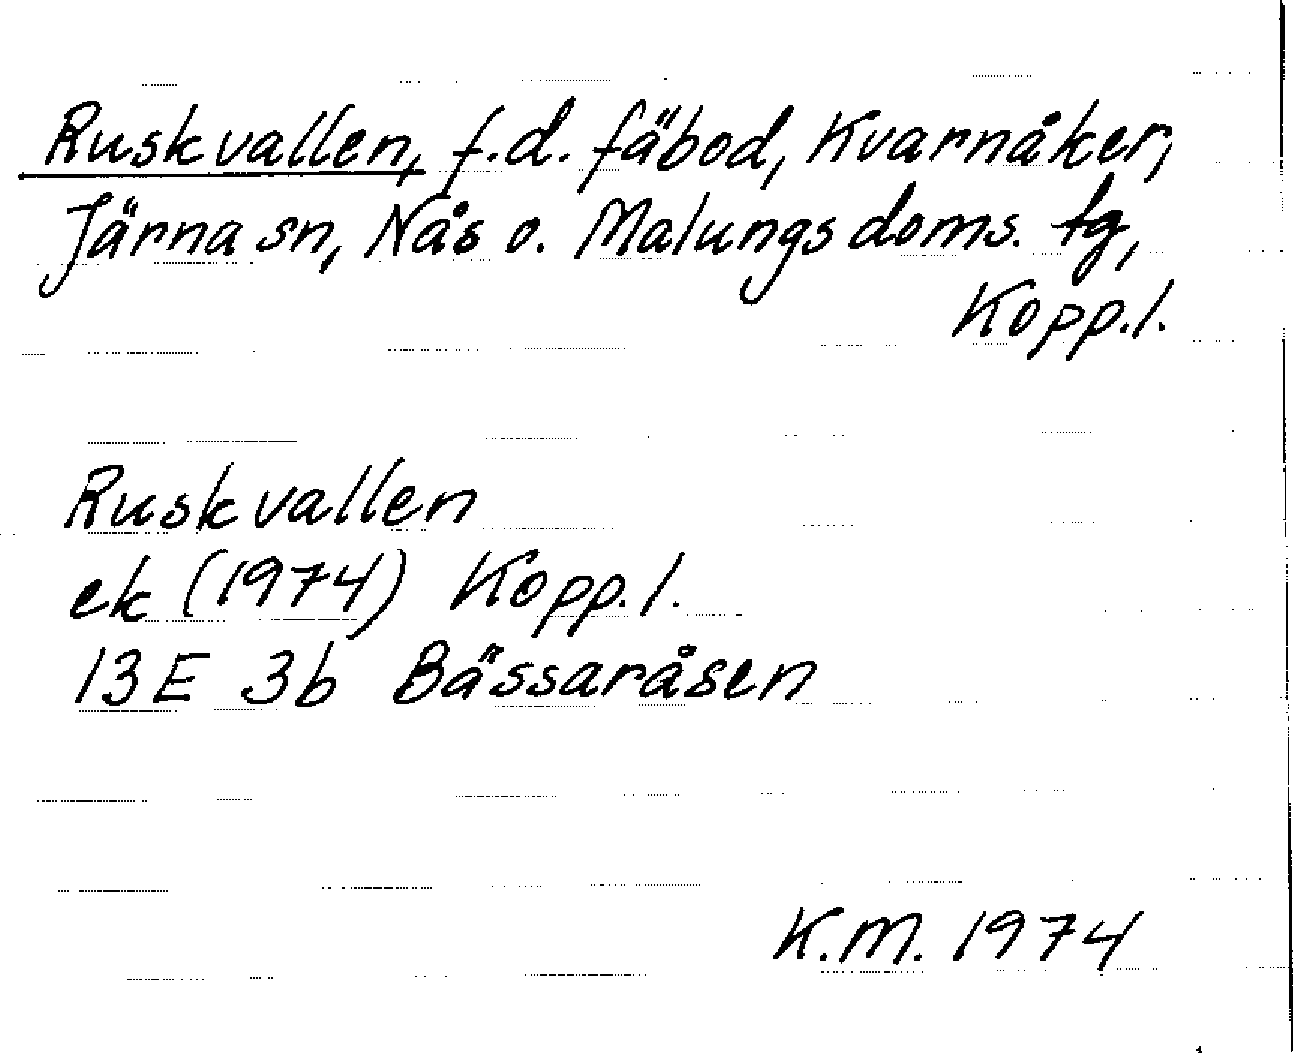 Ruskvallen, f.d. fäbod, Kvarnåker,
Järna sn, Nås o. Malungs doms. tg,
Kopp.l.
Ruskvallen
ek (1974) Kopp.l.
13E 3b Bässaråsen
K.M. 1974